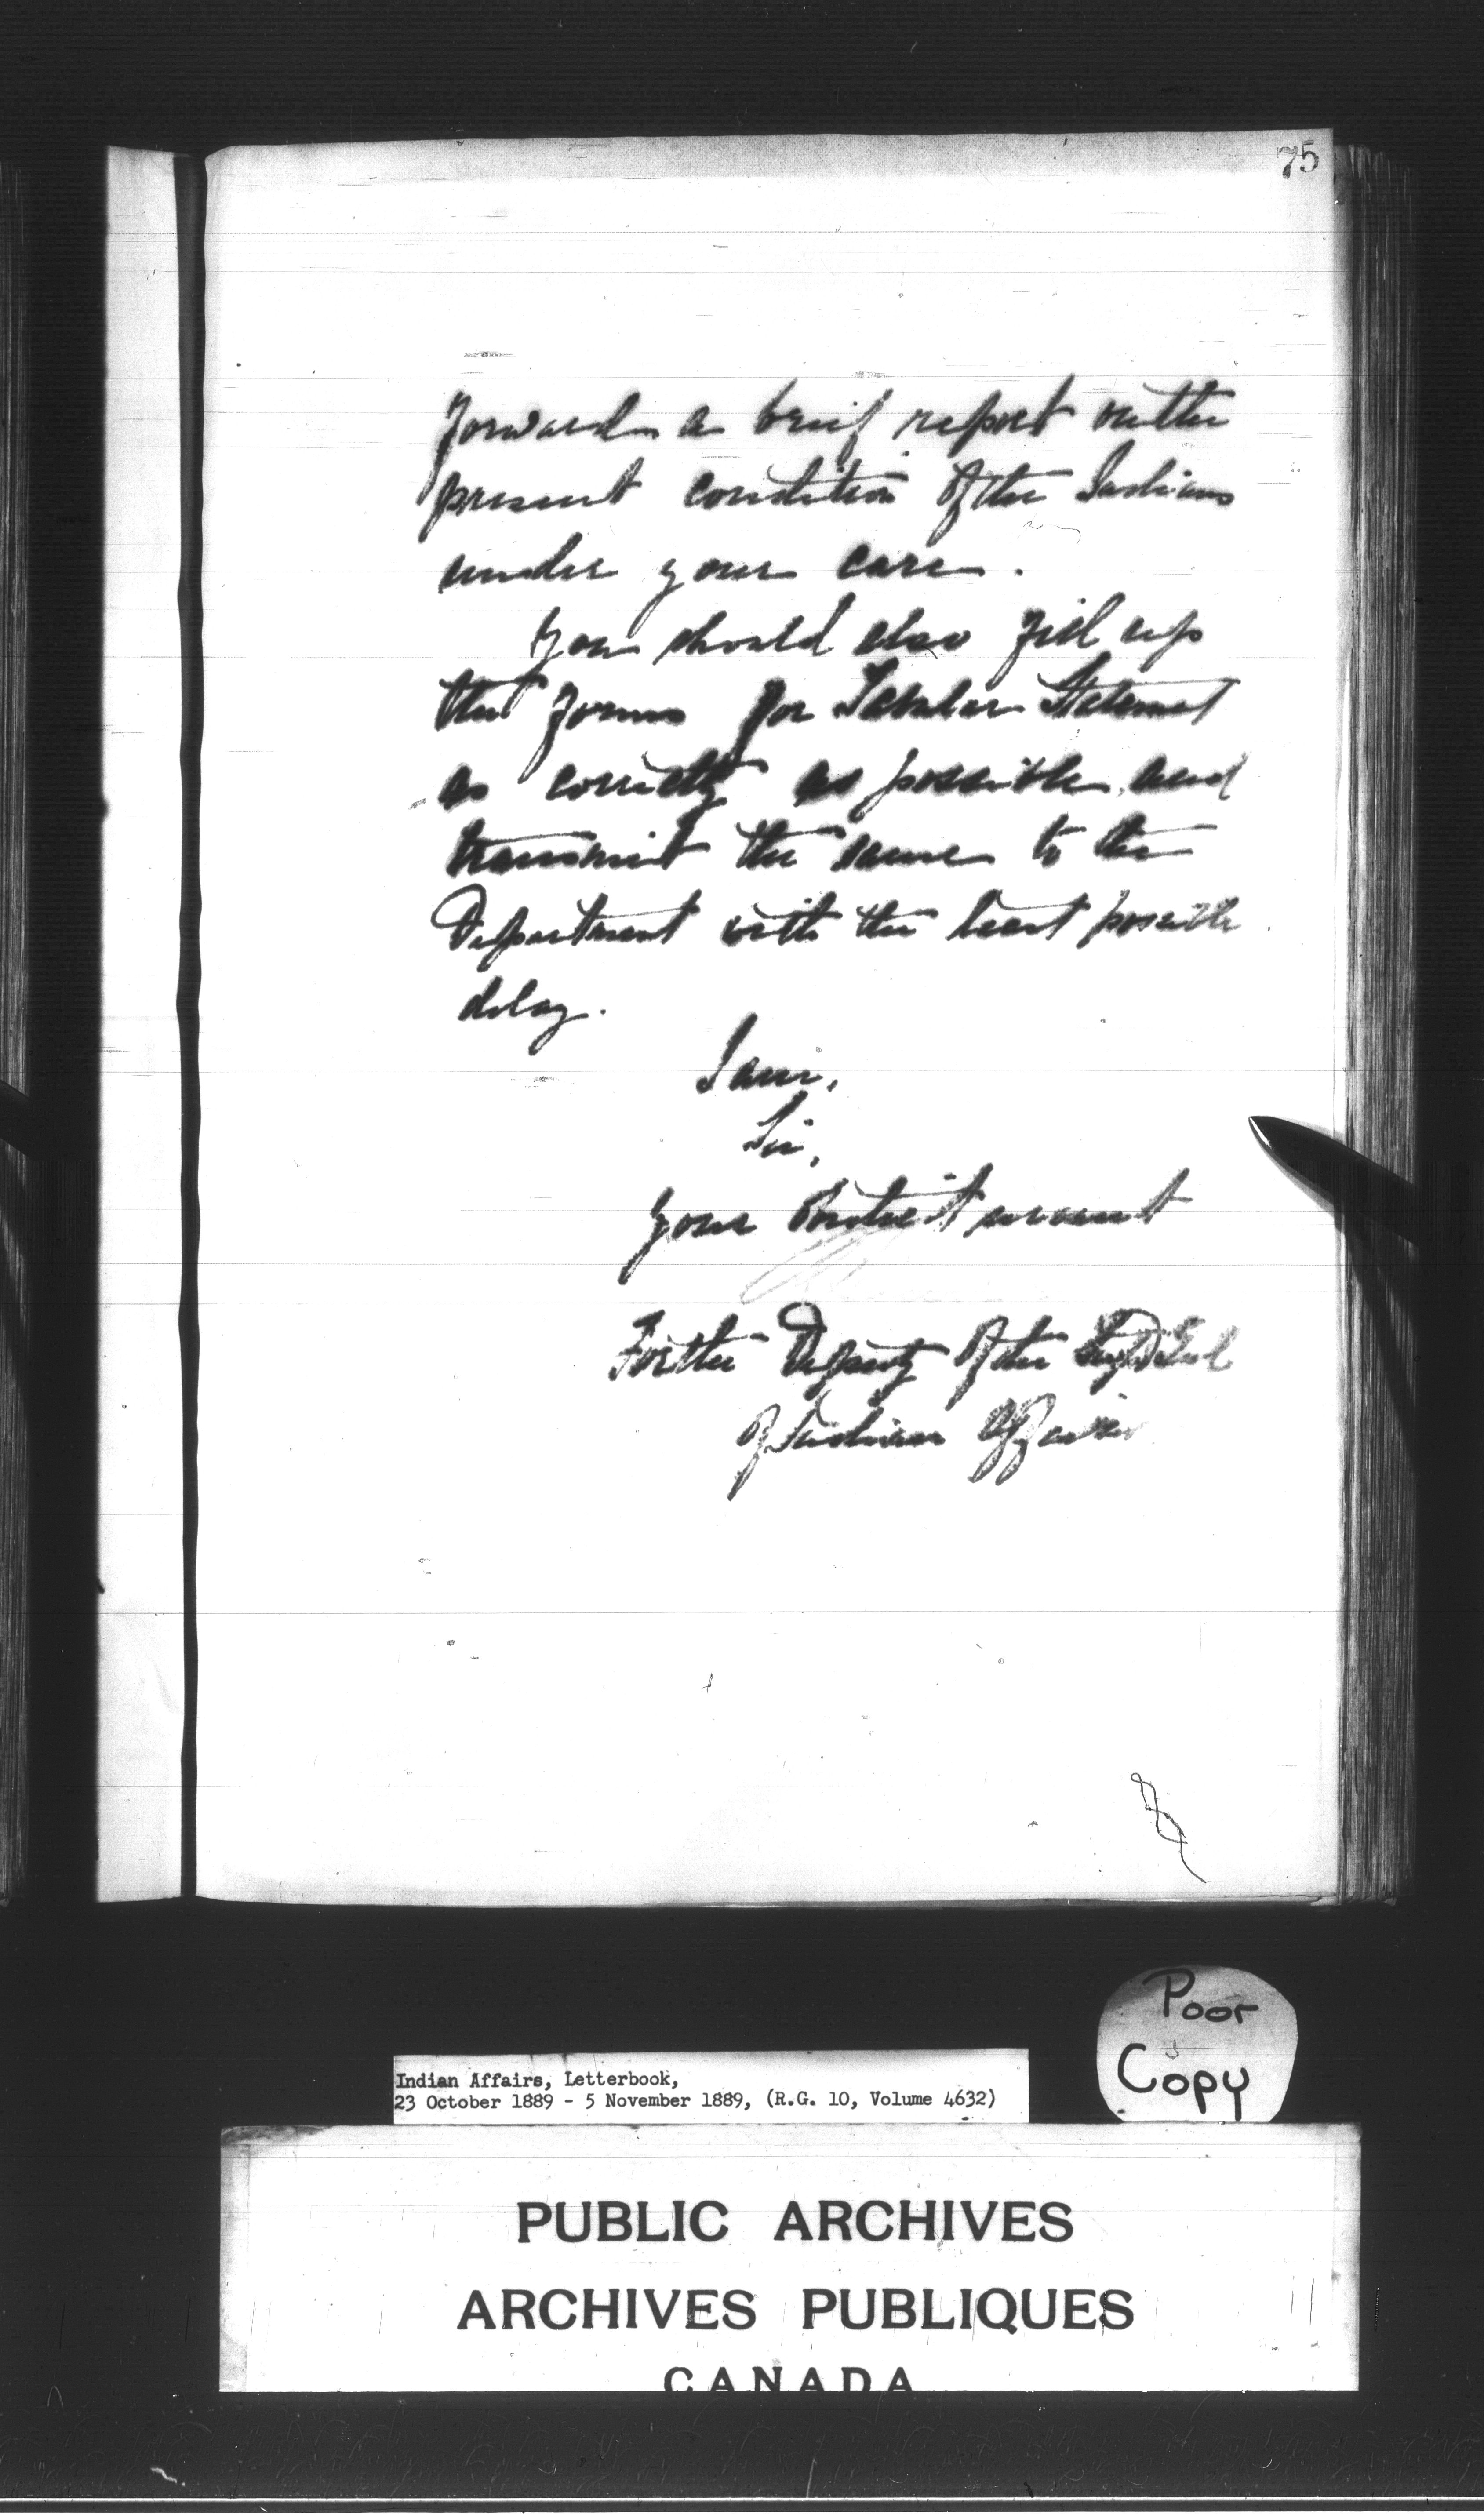 75
forward a brief report on the
present condition of the Indians
under your care.
You should also fill up
the forms for Tabular Statement
as correctly as possible, and
transmit the same to the
Department with the least possible
delay.
I am,
Sir,
Your Obedient servant
For the Deputy of the Supt Genl
of Indian Affairs
Poor
Copy
Indian Affairs, Letterbook,
23 October 1889 - 5 November 1889, (R.G. 10, Volume 4632)
PUBLIC ARCHIVES
ARCHIVES PUBLIQUES
CANADA